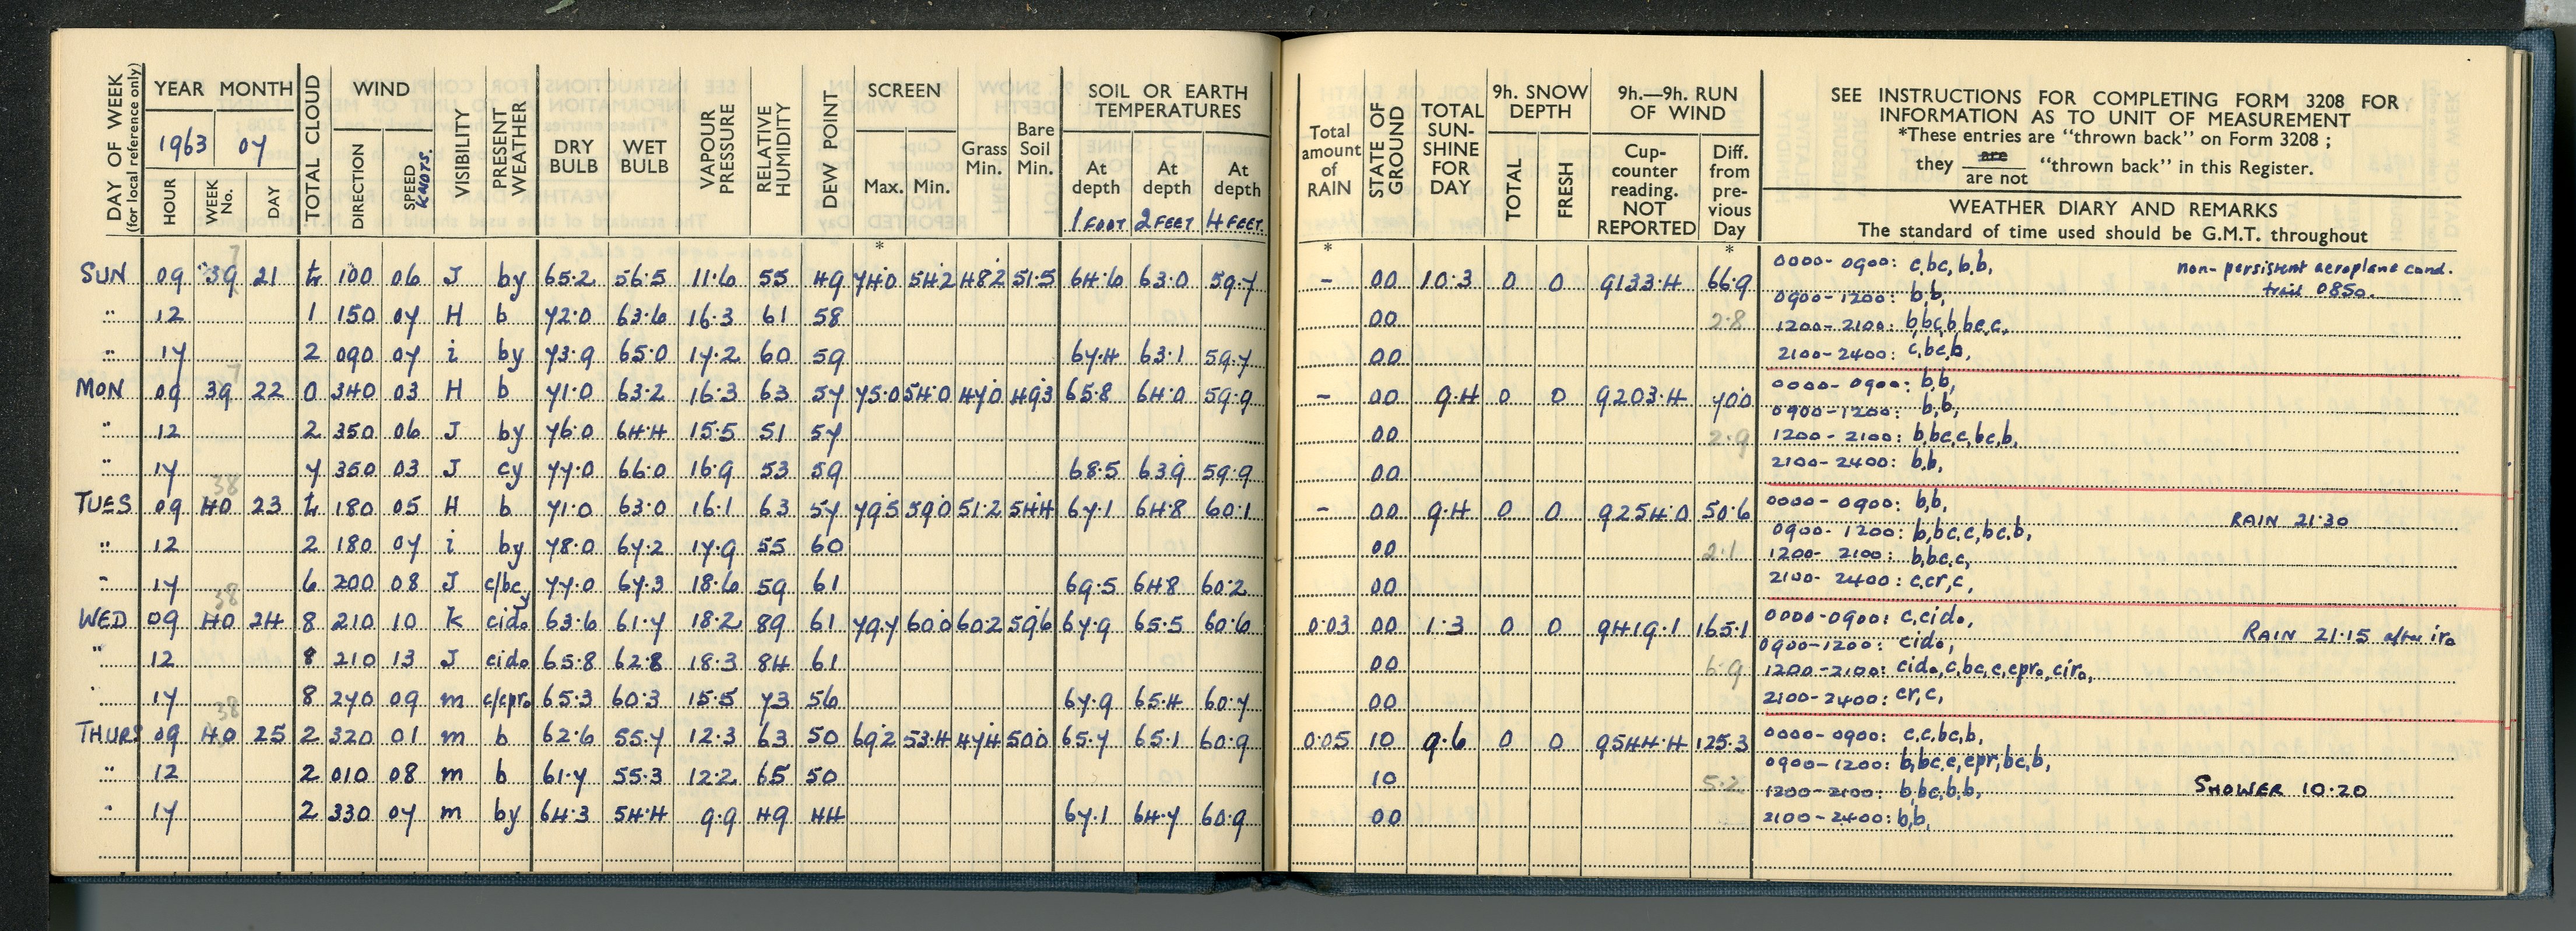 DAY OF WEEK (for local reference only) YEAR MONTH TOTAL CLOUD WIND VISIBILITY PRESENT WEATHER DRY BULB WET BULB VAPOUR PRESSURE RELATIVE HUMIDITY DEW POINT SCREEN Grass Min. Bare Soil Min. SOIL OR EARTH TEMPERATURES
1963 07
HOUR WEEK No. DAY DIRECTION SPEED KNOTS. Max. Min. At depth At depth At depth
1 FOOT 2 FEET 4 FEET
*
SUN 09 39 21 t 100 06 J by 65.2 56.5 11.6 55 49 74.0 54.2 48.2 51.5 64.6 63.0 59.7
" 12 1 150 07 H b 72.0 63.6 16.3 61 58
" 17 2 090 07 i by 73.9 65.0 17.2 60 59 67.4 63.1 59.7
MON 09 39 22 0 340 03 H b 71.0 63.2 16.3 63 57 75.0 54.0 47.0 49.3 65.8 64.0 59.9
" 12 2 350 06 J by 76.0 64.4 15.5 51 57
" 17 7 350 03 J cy 77.0 66.0 16.9 53 59 68.5 63.9 59.9
38
TUES 09 40 23 t 180 05 H b 71.0 63.0 16.1 63 57 79.5 59.0 51.2 54.4 67.1 64.8 60.1
" 12 2 180 07 i by 78.0 67.2 17.9 55 60
" 17 6 200 08 J c/bcy 77.0 67.3 18.6 59 61 69.5 64.8 60.2
38
WED 09 40 24 8 210 10 k cido 63.6 61.7 18.2 89 61 79.7 60.0 60.2 59.6 67.9 65.5 60.6
" 12 8 210 13 J cido 65.8 62.8 18.3 84 61
" 17 8 270 09 m c/cpro 65.3 60.3 15.5 73 56 67.9 65.4 60.7
38
THURS 09 40 25 2 320 01 m b 62.6 55.7 12.3 63 50 69.2 53.4 47.4 50.0 65.7 65.1 60.9
" 12 2 010 08 m b 61.7 55.3 12.2 65 50
" 17 2 330 07 m by 64.3 54.4 9.9 49 44 67.1 64.7 60.9
Total amount of RAIN STATE OF GROUND TOTAL SUN-SHINE FOR DAY 9h. SNOW DEPTH TOTAL FRESH 9h.—9h. RUN OF WIND Cup-counter reading. NOT REPORTED Diff. from pre-vious Day
SEE INSTRUCTIONS FOR COMPLETING FORM 3208 FOR
INFORMATION AS TO UNIT OF MEASUREMENT
*These entries are "thrown back" on Form 3208 ;
they are are not "thrown back" in this Register.
WEATHER DIARY AND REMARKS
The standard of time used should be G.M.T. throughout
* *
- 00 10.3 0 0 9133.4 66.9 0000-0900: c,bc,b,b, non-persistent aeroplane cond.
trail 0850.
0900-1200: b,b,
00 2.8 1200-2100: b,bc,b,bc,c,
00 2100-2400: c,bc,b,
- 00 9.4 0 0 9203.4 70.0 0000-0900: b,b,
0900-1200: b,b,
00 2.9 1200-2100: b,bc,c,bc,b,
00 2100-2400: b,b,
- 00 9.4 0 0 9254.0 50.6 0000-0900: b,b, RAIN 21.30
0900-1200: b,bc,c,bc,b,
00 2.1 1200-2100: b,bc,c,
00 2100-2400: c,cr,c,
0.03 00 1.3 0 0 9419.1 165.1 0000-0900: c,cido, RAIN 21.15 after iro
0900-1200: cido,
00 6.9 1200-2100: cido,c,bc,c,cpro,ciro,
00 2100-2400: cr,c,
0.05 10 9.6 0 0 9544.4 125.3 0000-0900: c,c,bc,b,
0900-1200: b,bc,c,cpr,bc,b,
10 5.2 1200-2100: b,bc,b,b, SHOWER 10.20
00 2100-2400: b,b,